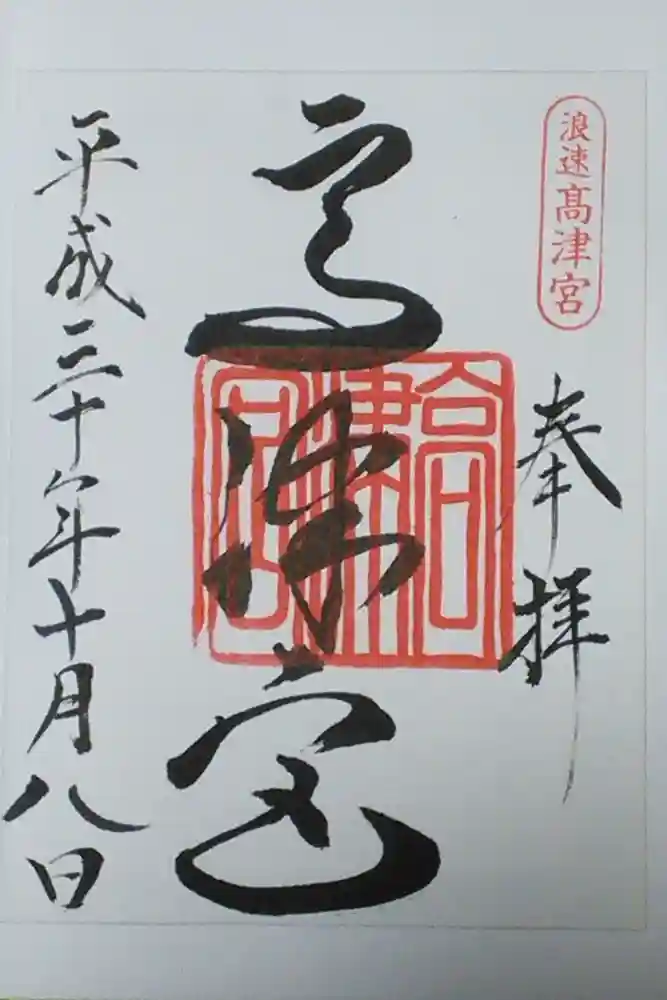 浪速髙津宮
奉拝
高津宮
高津宮
平成三十年十月八日